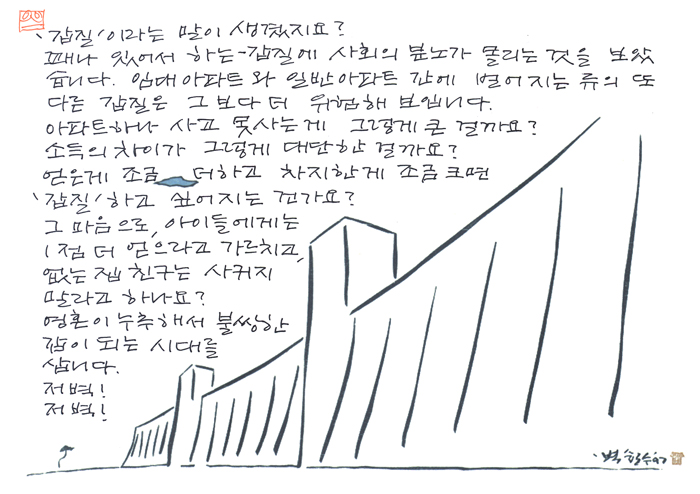 '갑질'이라는 말이 생겼지요?
꽤나 있어서 하는-갑질에 사회의 분노가 몰리는 것을 보았
습니다. 임대아파트와 일반아파트 간에 벌어지는 류의 또
다른 갑질은 그보다 더 위험해 보입니다.
아파트하나 사고 못사는게 그렇게 큰 걸까요?
소득의 차이가 그렇게 대단한 걸까요?
얻은게 조금 더하고 차지한게 조금 크면
'갑질'하고 싶어지는 건가요?
그 마음으로, 아이들에게는
1점 더 얻으라고 가르치고,
없는 집 친구는 사귀지
말라고 하나요?
영혼이 누추해서 불쌍한
갑이 되는 시대를
삽니다.
저 벽!
저 벽!